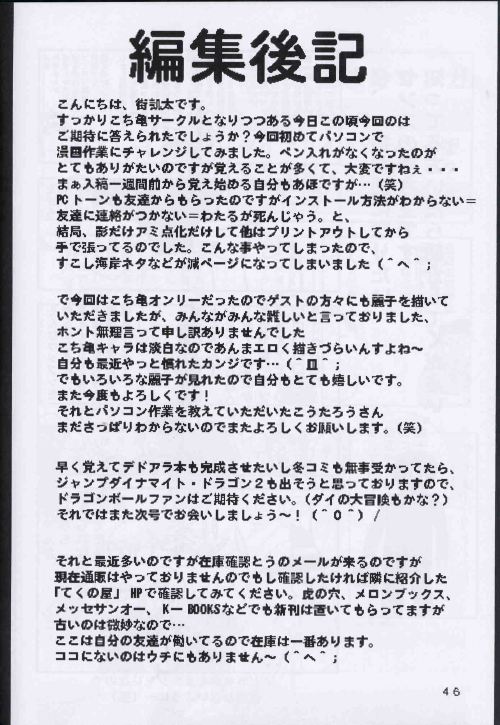 編集後記
こんにちは、街凱太です。
すっかりこち亀サークルとなりつつある今日この頃今回のは
ご期待に答えられたでしょうか？今回初めてパソコンで
漫画作業にチャレンジしてみました。ペン入れがなくなったのが
とてもありがたいのですが覚えることが多くて、大変ですねぇ・・・
まぁ入稿一週間前から覚え始める自分もあほですが…（笑）
PCトーンも友達からもらったのですがインストール方法がわからない＝
友達に連絡がつかない＝わたるが死んじゃう。と、
結局、影だけアミ点化だけして他はプリントアウトしてから
手で張ってるのでした。こんな事やってしまったので、
すこし海岸ネタなどが減ページになってしまいました（＾へ＾；
で今回はこち亀オンリーだったのでゲストの方々にも麗子を描いて
いただきましたが、みんながみんな難しいと言っておりました、
ホント無理言って申し訳ありませんでした
こち亀キャラは淡白なのであんまエロく描きづらいんすよね～
自分も最近やっと慣れたカンジです…（＾皿＾；
でもいろいろな麗子が見れたので自分もとても嬉しいです。
また今度もよろしくです！
それとパソコン作業を教えていただいたこうたろうさん
まださっぱりわからないのでまたよろしくお願いします。（笑）
早く覚えてデドアラ本も完成させたいし冬コミも無事受かってたら、
ジャンプダイナマイト・ドラゴン２も出そうと思っておりますので、
ドラゴンボールファンはご期待ください。（ダイの大冒険もかな？）
それではまた次号でお会いしましょう～！（＾０＾）/
それと最近多いのですが在庫確認とうのメールが来るのですが
現在通販はやっておりませんのでもし確認したければ隣に紹介した
「てくの屋」HPで確認してみてください。虎の穴、メロンブックス、
メッセサンオー、K－BOOKSなどでも新刊は置いてもらってますが
古いのは微妙なので…
ここは自分の友達が働いてるので在庫は一番あります。
ココにないのはウチにもありません～（＾へ＾；
46